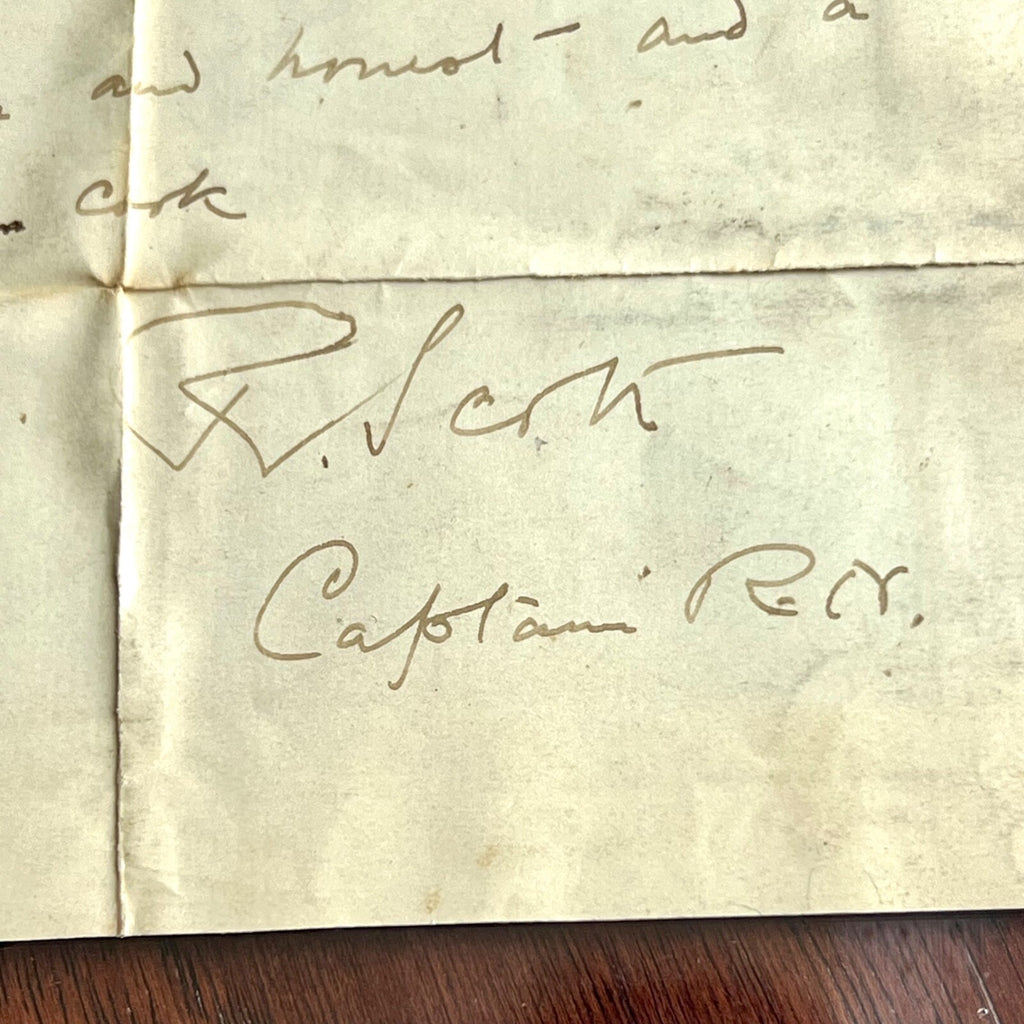 and honest - and a
cook
R. Scott
Captain R.N.